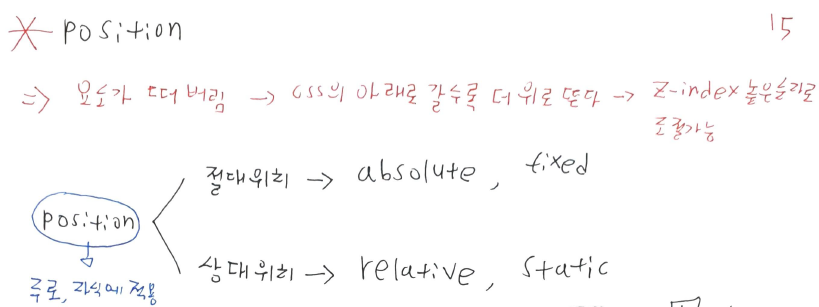 * position
15
⇒ 요소가 떠 버림 → css의 아래로 갈수록 더 위로 뜬다 → z-index 높은숫자로
조절가능
절대위치 → absolute, fixed
position
상대위치 → relative, static
주로, 자식에 적용